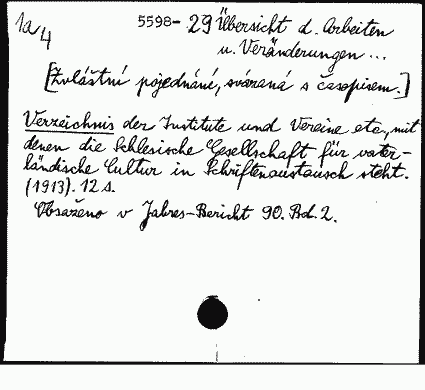 1a4 5598-29 Übersicht d. Arbeiten
u. Veränderungen ...
[Zvláštní pojednání, svázaná s časopisem.]
Verzeichnis der Institute und Vereine etc, mit
denen die Schlesische Gesellschaft für vater-
ländische Cultur in Schriftenaustausch steht.
(1913). 12 s.
Obsaženo v Jahres-Bericht 90. Bd. 2.